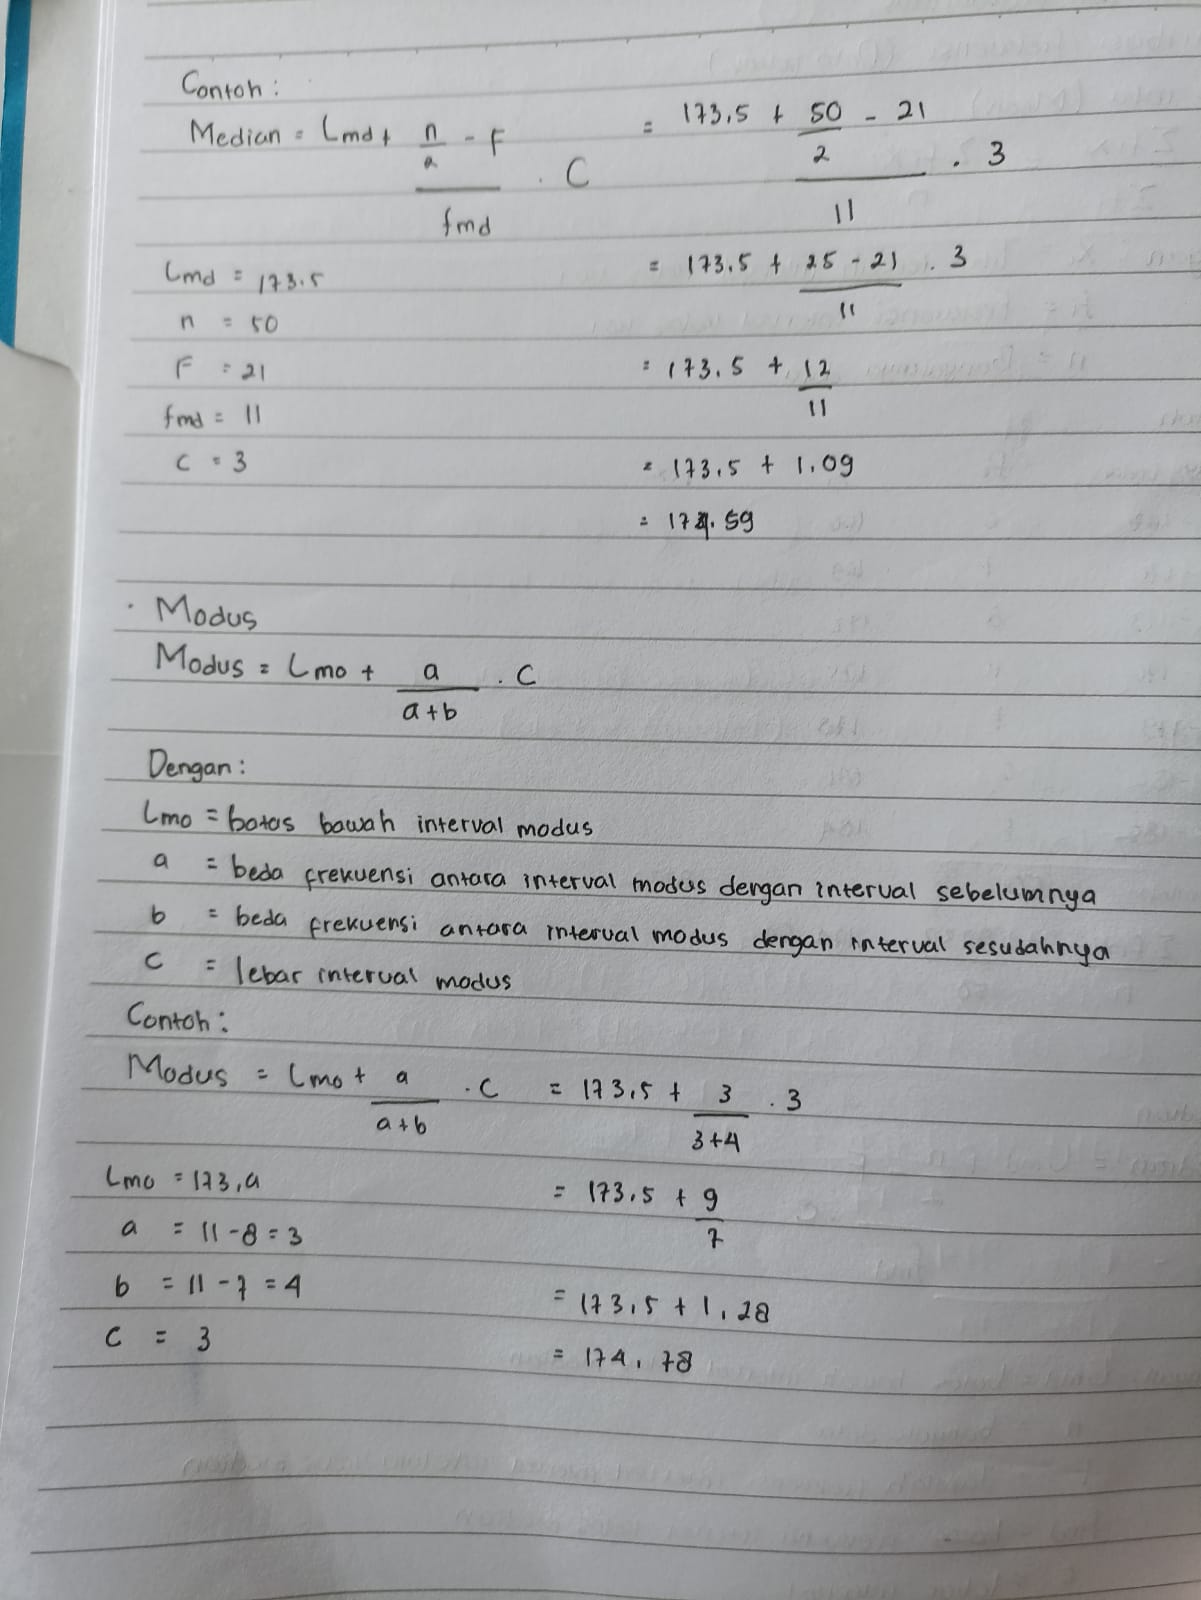 Contoh :
Median = Lmd + n/2 - F / fmd . C = 173,5 + 50/2 - 21 / 11 . 3
Lmd = 173.5 = 173,5 + 25 - 21 / 11 . 3
n = 50
F = 21 = 173,5 + 12/11
fmd = 11
C = 3 = 173,5 + 1,09
= 174.59
· Modus
Modus = Lmo + a / a+b . C
Dengan :
Lmo = batas bawah interval modus
a = beda frekuensi antara interval modus dengan interval sebelumnya
b = beda frekuensi antara interval modus dengan interval sesudahnya
C = lebar interval modus
Contoh :
Modus = Lmo + a / a+b . C = 173,5 + 3 / 3+4 . 3
Lmo = 173,a = 173,5 + 9/7
a = 11 - 8 = 3
b = 11 - 7 = 4 = 173,5 + 1,28
C = 3 = 174,78